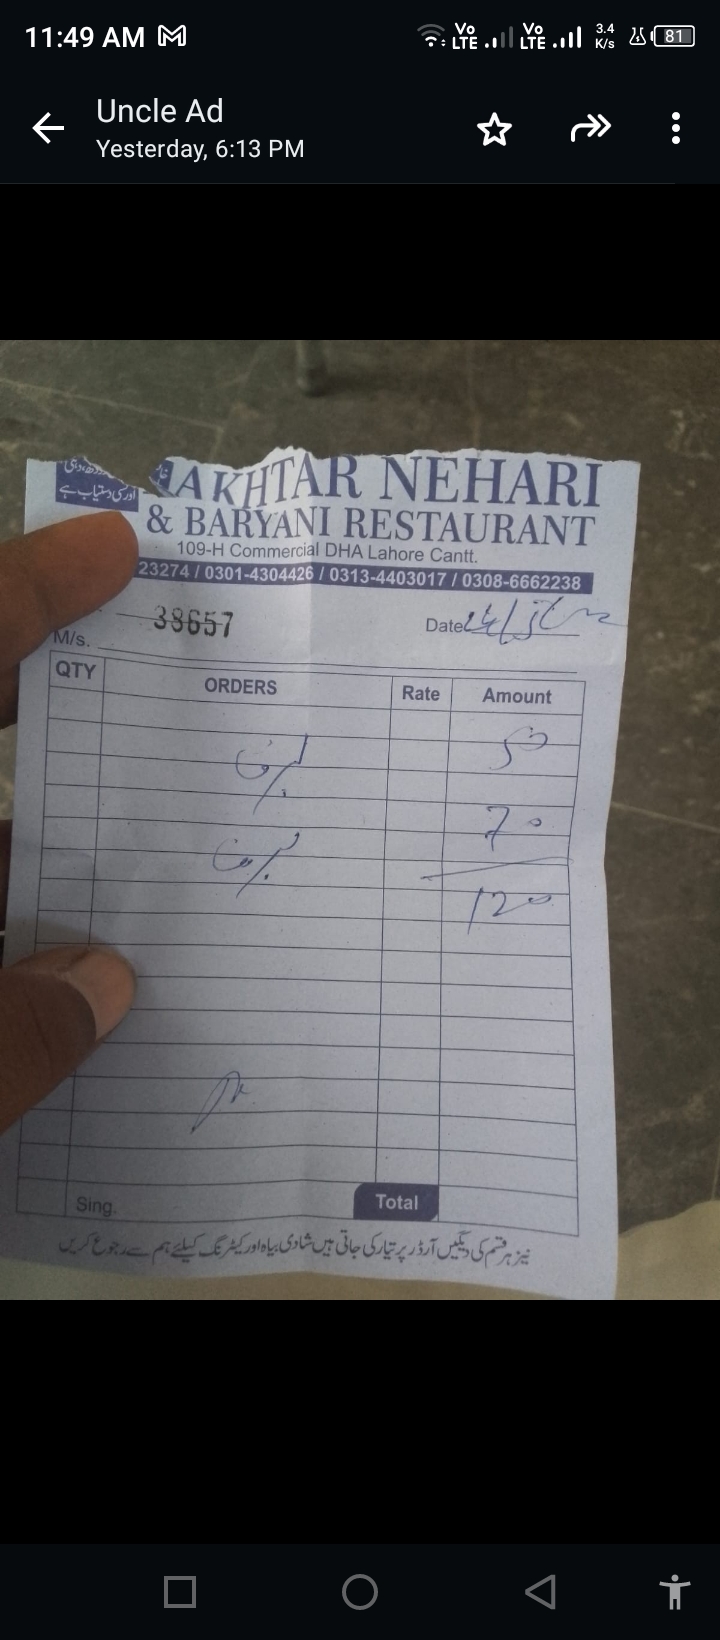 11:49 AM
Vo LTE Vo LTE 3.4 K/s 81
Uncle Ad
Yesterday, 6:13 PM
اور لسی دستیاب ہے
AKHTAR NEHARI
& BARYANI RESTAURANT
109-H Commercial DHA Lahore Cantt.
23274 / 0301-4304426 / 0313-4403017 / 0308-6662238
38657
Date
M/s.
QTY ORDERS Rate Amount
برف 50
برف 70
120
Sing. Total
نیز ہر قسم کی دیگیں آرڈر پر تیار کی جاتی ہیں شادی بیاہ اور کیٹرنگ کیلئے ہم سے رجوع کریں